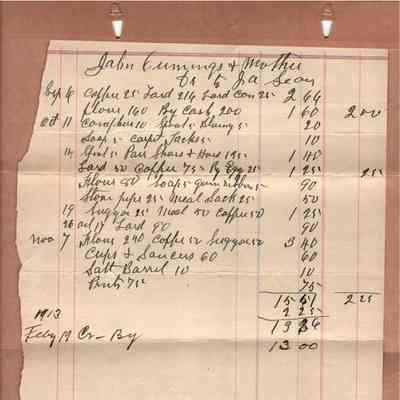 John Cummings & Mother
To J.A. Sears
Sep 6 Coffee 25 Lard 214 Lard Can 25 2 64
Flour 160 By Cash 200 1 60 2 00
Oct 11 5 20
Soap 5 Carpet Tacks 5 10
14 Pair Shoes & Hose 1 40
Lard 50 Coffee 75 By Egg 25 1 25 25
Flour 80 Soap 5 90
Stove pipe 25 Meal Sack 25 50
19 Suggar 25 Meal 50 Coffee 50 1 25
26 Lard 90 90
Nov 7 Flour 240 Coffee 50 Suggar 50 3 40
Cups & Saucers 60 60
Salt Barrel 10 10
75 75
15 2 25
2 25
1913 13
Feby 19 Cr By 13 00